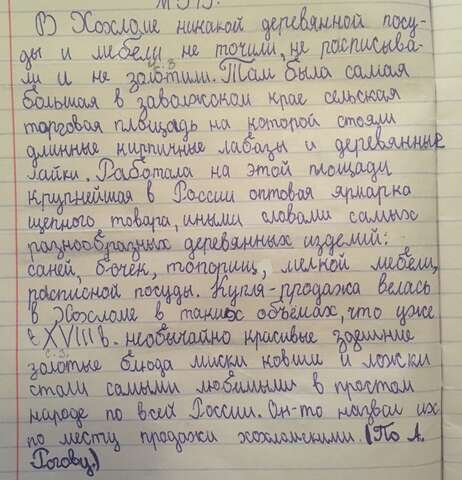 В Хохломе никакой деревянной посу-
ды и мебели не точили, не расписыва-
ли и не золотили. Там была самая
большая в заволжском крае сельская
торговая площадь на которой стояли
длинные кирпичные лабазы и деревянные
лавки. Работала на этой площади
крупнейшая в России оптовая ярмарка
щепного товара, иными словами самых
разнообразных деревянных изделий:
саней, бочек, топорищ, мелкой мебели,
расписной посуды. Купля-продажа велась
в Хохломе в таких объёмах, что уже
в XVIII в. необычайно красивые здешние
золотые блюда миски ковши и ложки
стали самыми любимыми в простом
народе по всей России. Он-то назвал их
по месту продажи хохломскими. (По А.
Рогову.)